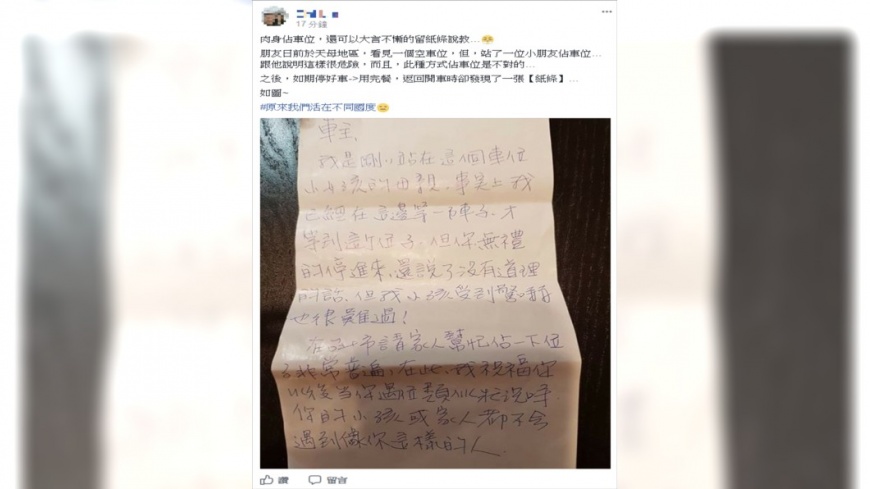 17 分鐘
肉身佔車位，還可以大言不慚的留紙條說教...
朋友日前於天母地區，看見一個空車位，但，站了一位小朋友佔車位...
跟他說明這樣很危險，而且，此種方式佔車位是不對的...
之後，如期停好車->用完餐，返回開車時卻發現了一張【紙條】...
如圖~
#原來我們活在不同國度
車主
我是剛小站在這個車位
小女孩的母親，事實上我
已經在這邊等一陣子，才
等到這個位子，但你無禮
的停進來，還說了沒有道理
的話，但我小孩受到驚嚇
也很難過！
在台北市請家人幫忙佔一下位
子非常普遍，在此，我祝福你
以後當你遇照類似狀況時
你的小孩或家人都不會
遇到像你這樣的人
讚 留言